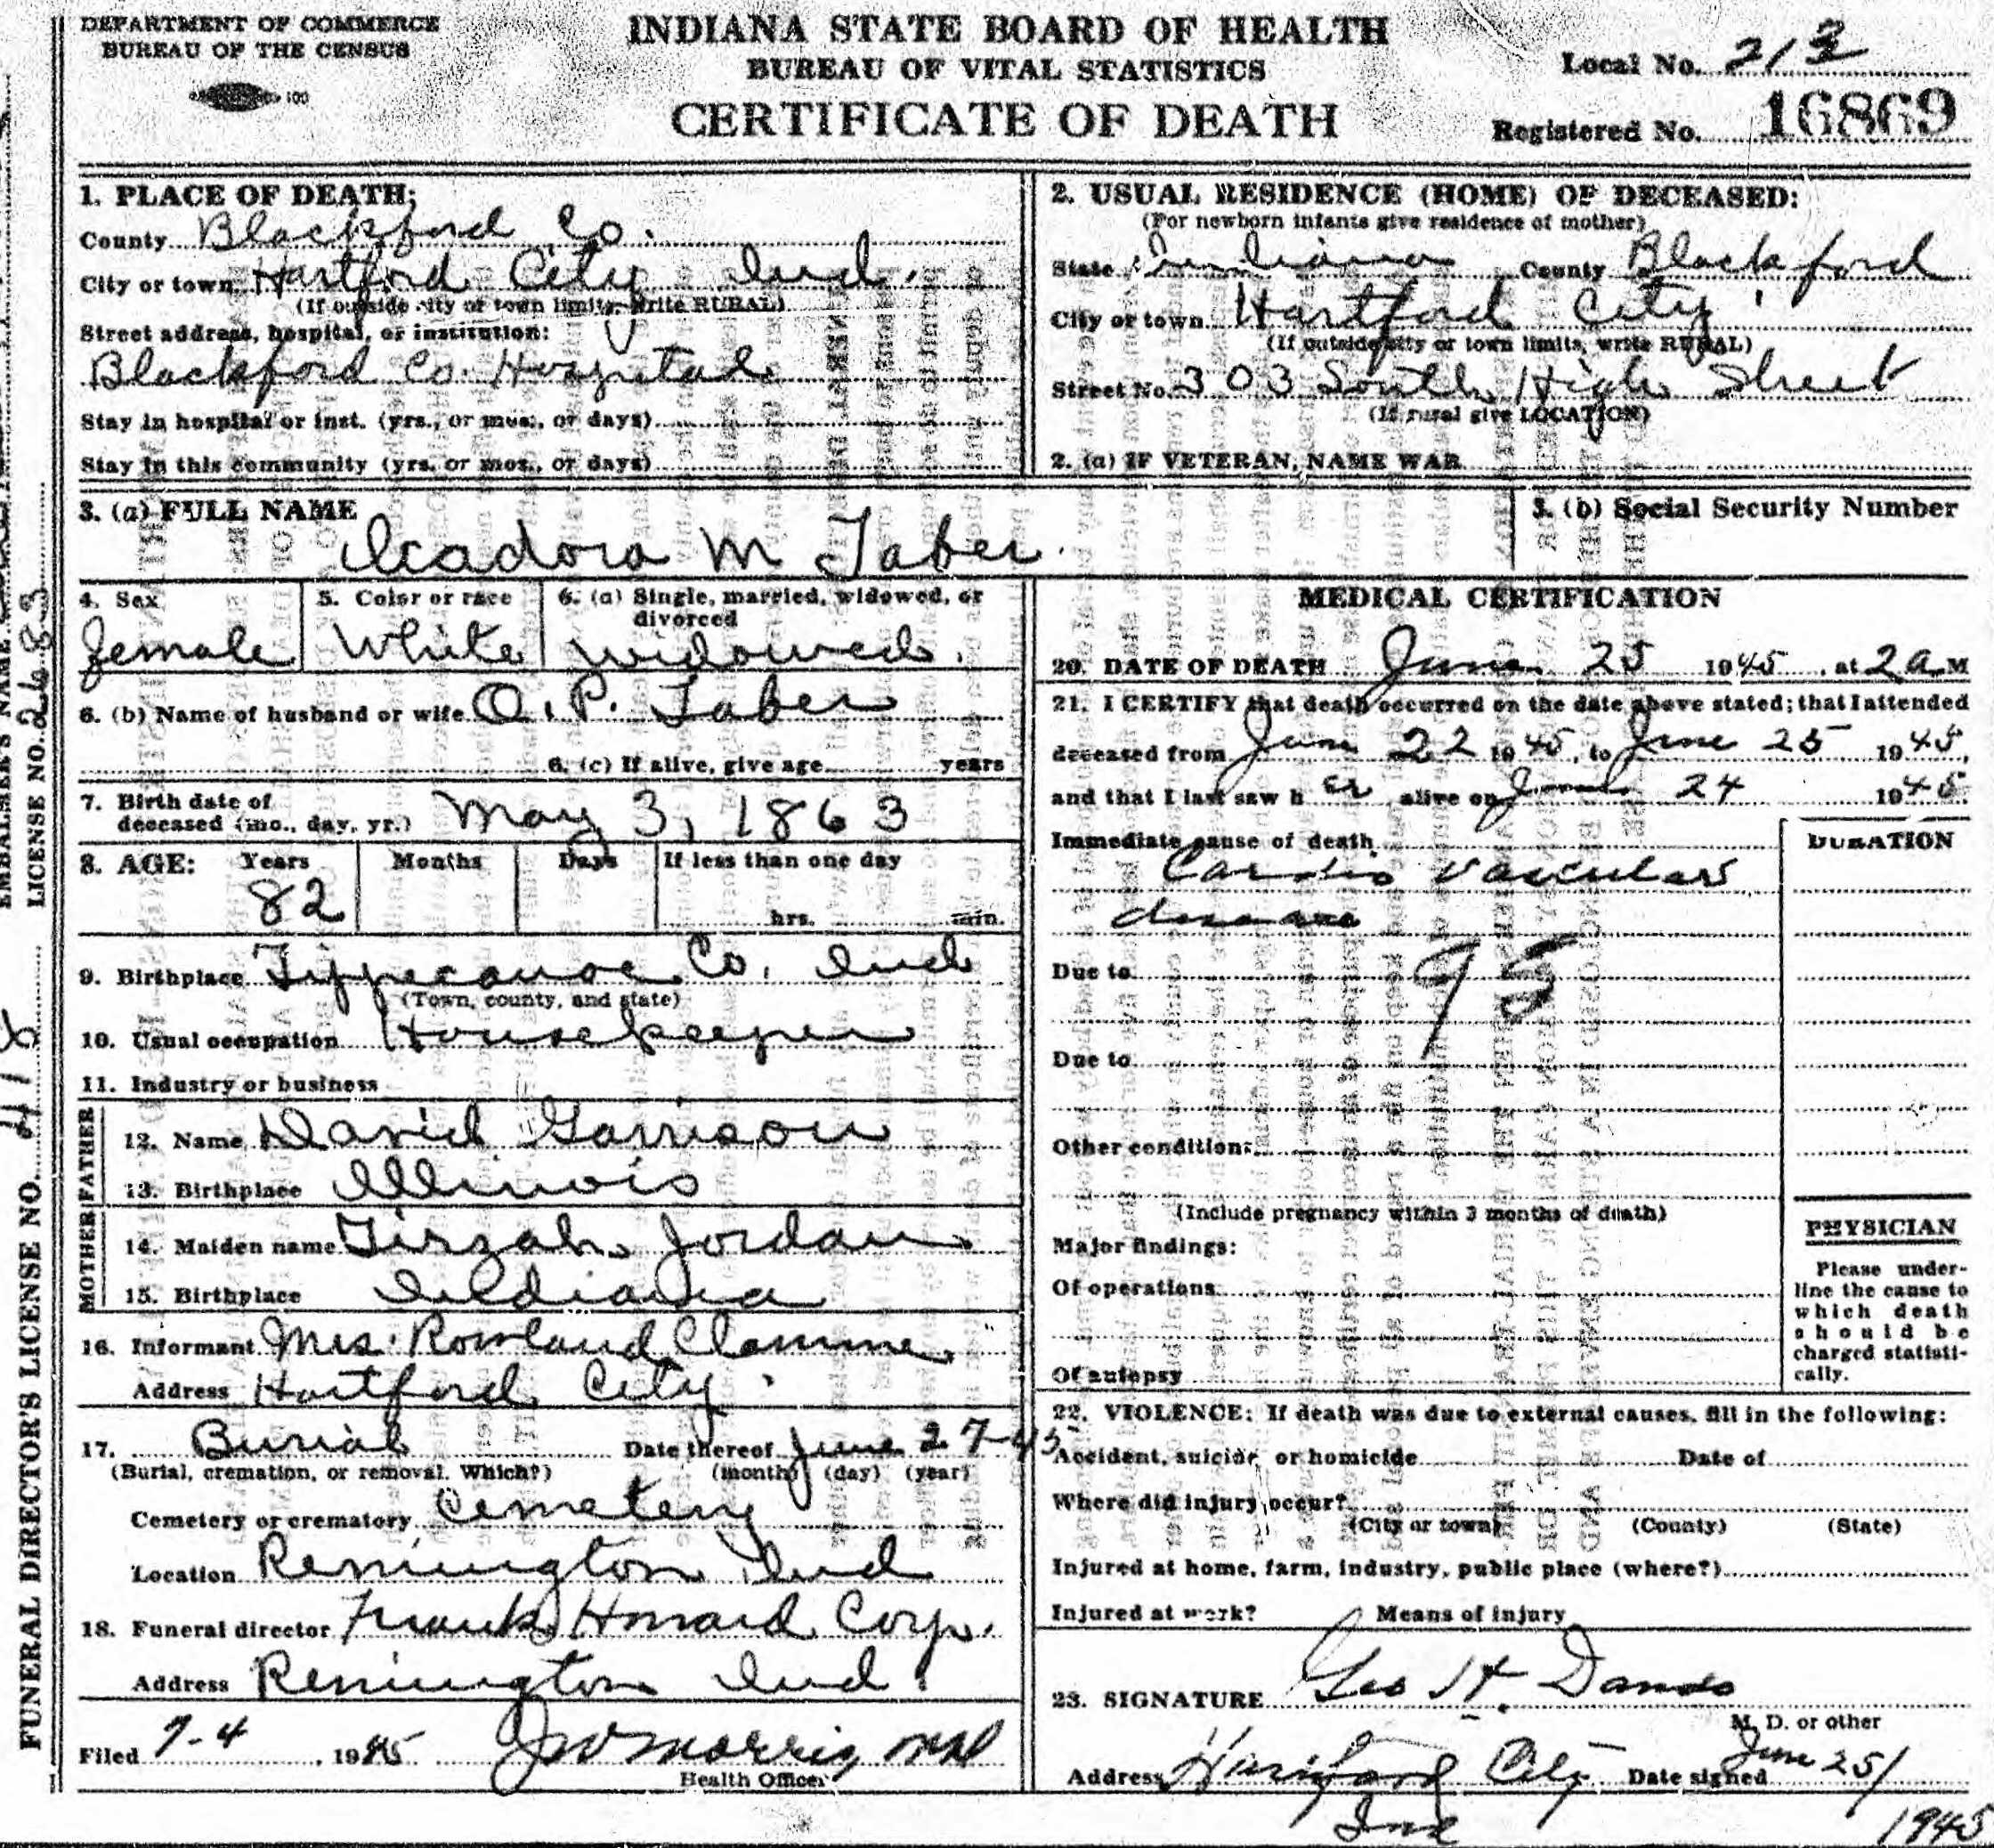 DEPARTMENT OF COMMERCE
BUREAU OF THE CENSUS
100
INDIANA STATE BOARD OF HEALTH
BUREAU OF VITAL STATISTICS
CERTIFICATE OF DEATH
Local No. 213
Registered No. 16869
1. PLACE OF DEATH:
County Blackford Co.
City or town Hartford City Ind.
(If outside city or town limits, write RURAL)
Street address, hospital, or institution:
Blackford Co. Hospital
Stay in hospital or inst. (yrs., or mos., or days)
Stay in this community (yrs. or mos., or days)
2. USUAL RESIDENCE (HOME) OF DECEASED:
(For newborn infants give residence of mother)
State Indiana County Blackford
City or town Hartford City
(If outside city or town limits, write RURAL)
Street No. 303 South High Street
(If rural give LOCATION)
2. (a) IF VETERAN, NAME WAR
3. (a) FULL NAME
Isadora M Taber
3. (b) Social Security Number
4. Sex
female
5. Color or race
White
6. (a) Single, married, widowed, or divorced
widowed.
6. (b) Name of husband or wife O. P. Taber
6. (c) If alive, give age years
7. Birth date of deceased (mo., day, yr.) May 3, 1863
8. AGE: Years Months Days If less than one day
82 hrs. min.
9. Birthplace Tippecanoe Co. Ind
(Town, county, and state)
10. Usual occupation Housekeeper
11. Industry or business
FATHER
12. Name David Garrison
13. Birthplace Illinois
MOTHER
14. Maiden name Tirzah Jordan
15. Birthplace Indiana
16. Informant Mrs. Rowland Clamme
Address Hartford City
17. Burial Date thereof June 27-45
(Burial, cremation, or removal. Which?) (month) (day) (year)
Cemetery or crematory Cemetery
Location Remington Ind
18. Funeral director Frank Howard Corp.
Address Remington Ind.
Filed 7-4, 1945 JW Morris MD
Health Officer
MEDICAL CERTIFICATION
20. DATE OF DEATH June 25 1945, at 2 a M
21. I CERTIFY that death occurred on the date above stated; that I attended
deceased from June 22 1945, to June 25 1945,
and that I last saw h er alive on June 24 1945
Immediate cause of death
Cardio Vascular
disease
DURATION
95
Due to
Due to
Other conditions
(Include pregnancy within 3 months of death)
Major findings:
Of operations
Of autopsy
PHYSICIAN
Please under-
line the cause to
which death
should be
charged statisti-
cally.
22. VIOLENCE: If death was due to external causes, fill in the following:
Accident, suicide, or homicide Date of
Where did injury occur?
(City or town) (County) (State)
Injured at home, farm, industry, public place (where?)
Injured at work? Means of injury
23. SIGNATURE Geo H.
M. D. or other
Address Hartford City Date signed June 25/
Ind 1945
EMBALMER'S NAME
LICENSE NO. 2683
FUNERAL DIRECTOR'S LICENSE NO.